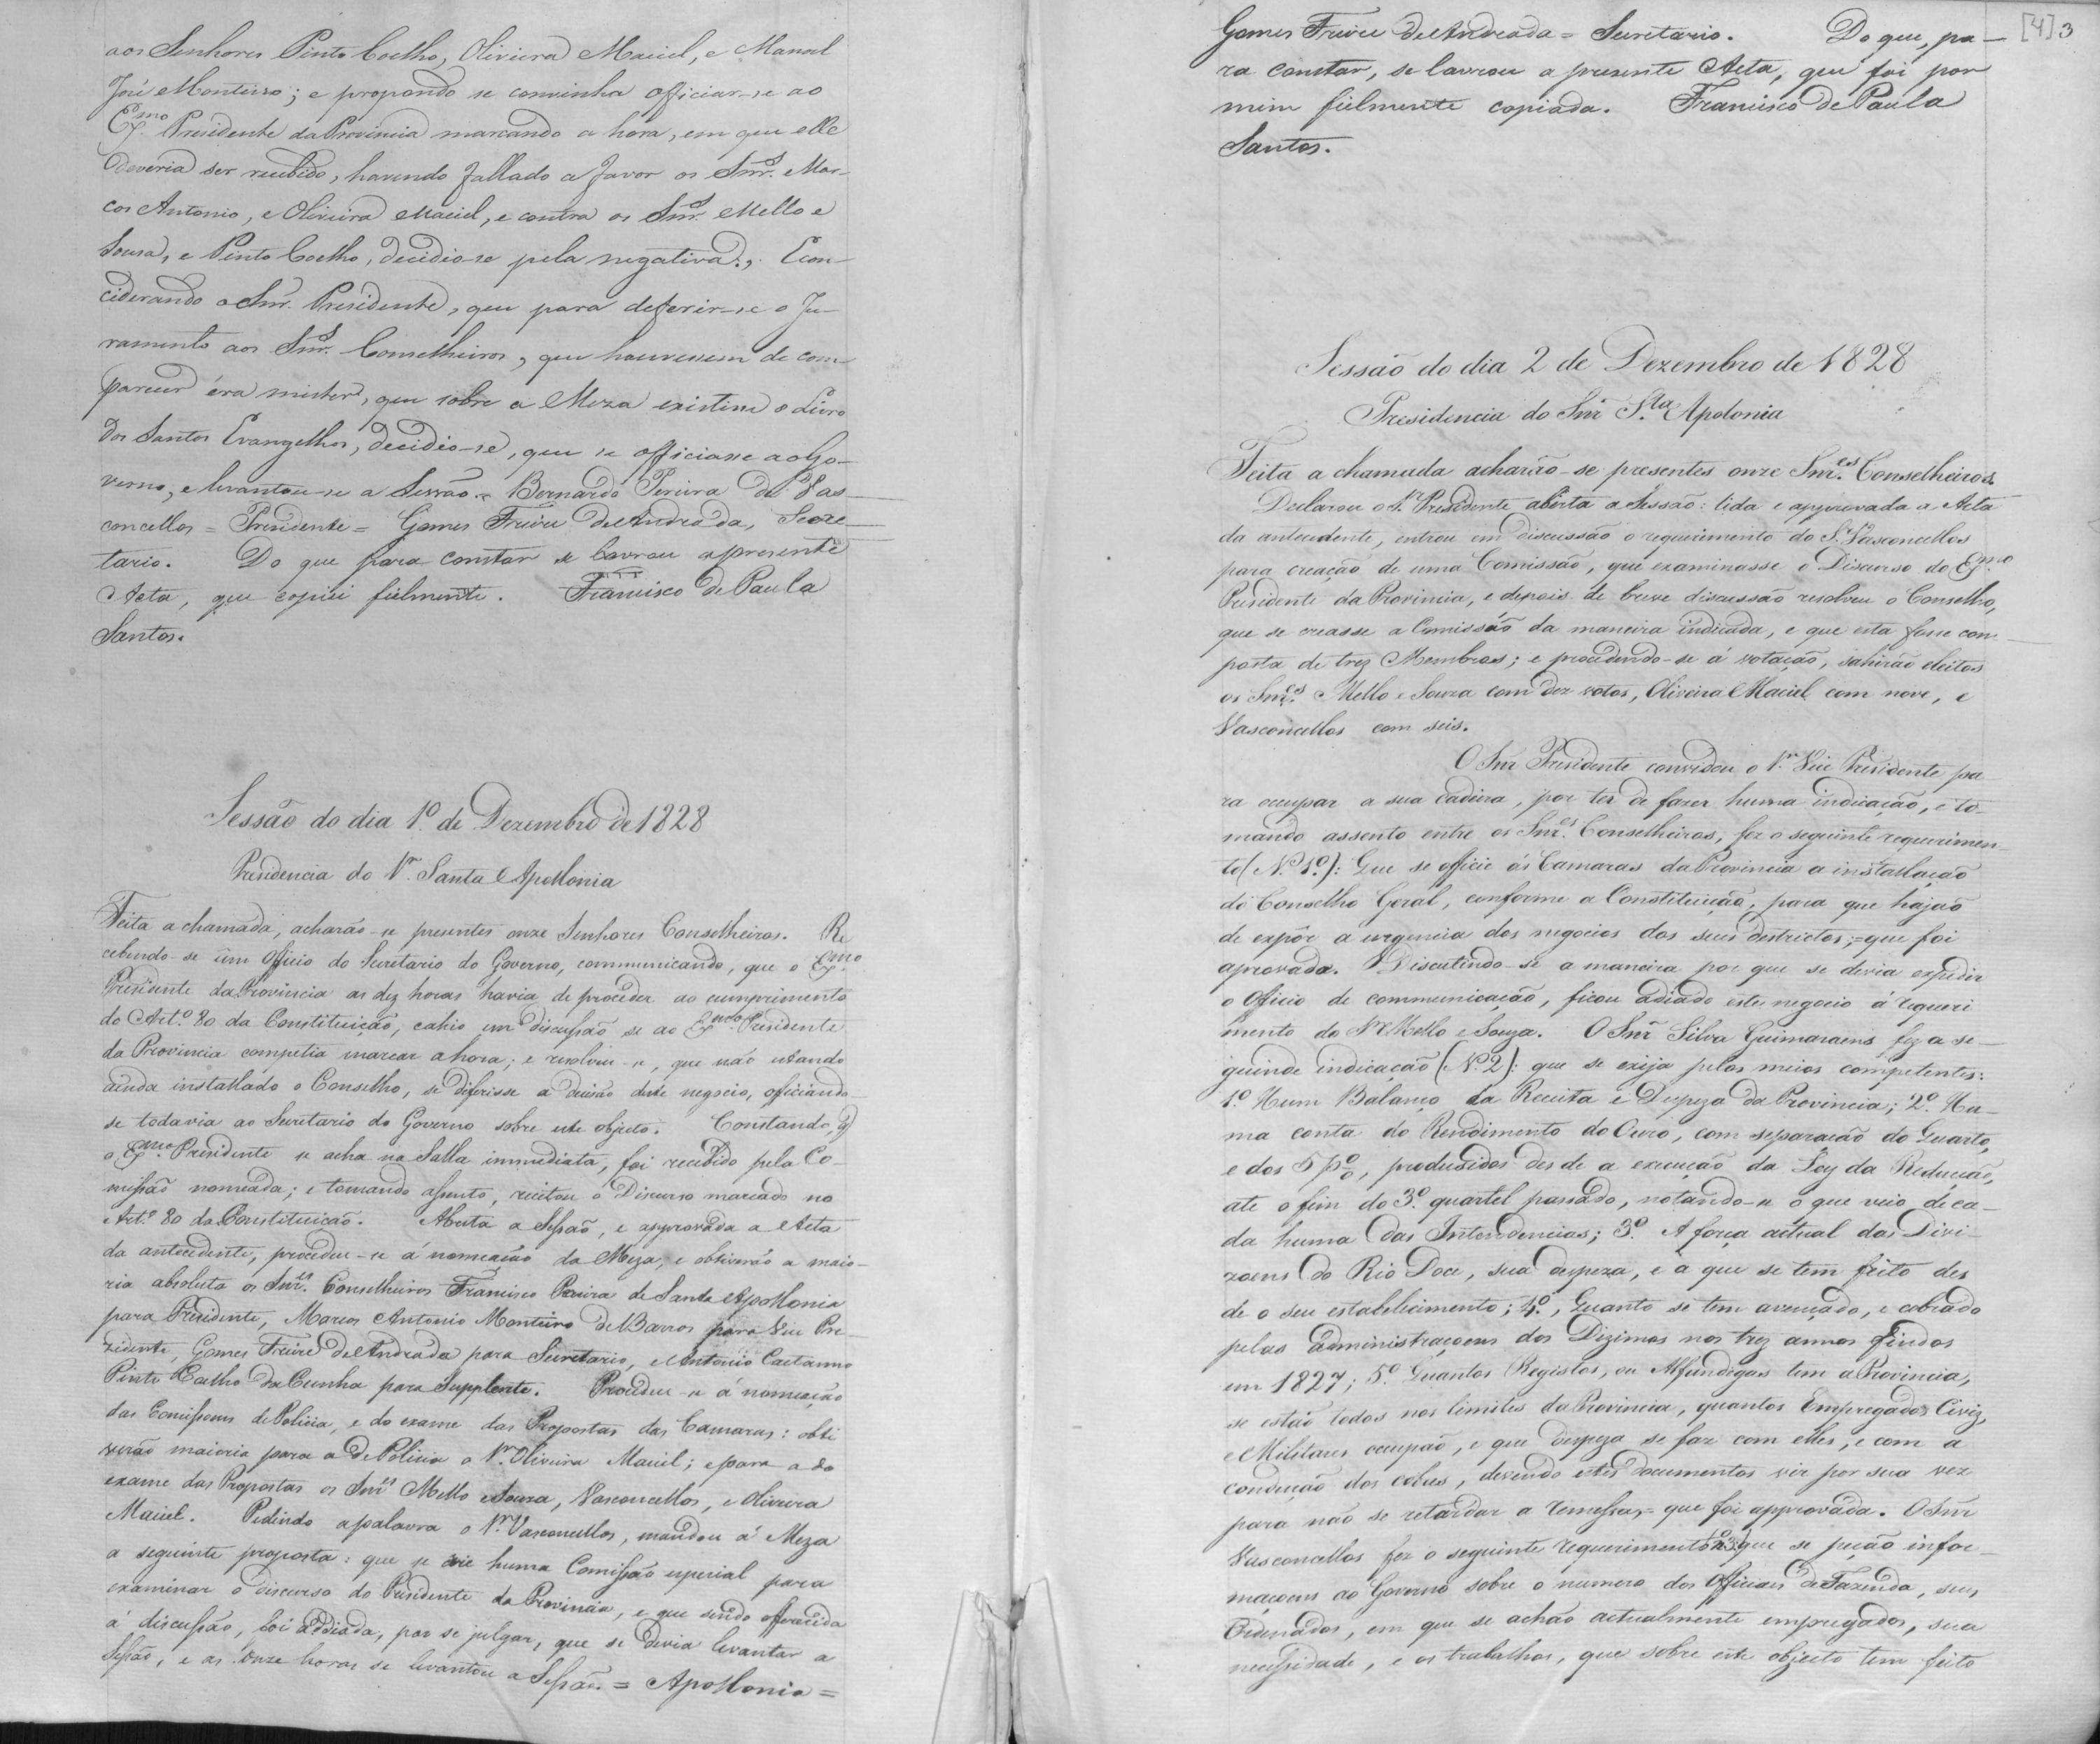 aos Senhores Pinto Coelho, Oliveira Maciel, e Manoel
José Monteiro; e propondo se convinha officiar-se ao
Ex.mo Presidente da Provincia marcando a hora, em que elle
deveria ser recebido, havendo fallado a favor os Snr.s Mar-
cos Antonio, e Oliveira Maciel, e contra os Snr.s Mello e
Sousa, e Pinto Coelho, decidio-se pela negativa., Econ-
ciderando o Snr. Presidente, que para deferir-se o Ju-
ramento aos Snr.s Conselheiros, que houvessem de com-
parecer éra mister, que sobre a Meza existisse o Livro
dos Santos Evangelhos, decidio-se, que se officiasse ao Go-
verno, e levantou-se a Sessão. = Bernardo Pereira de Vas-
concellos = Presidente = Gomes Freire de Andrada, Secre-
tario. Do que para constar se lavrou a presente
Acta, que copiei fielmente. Francisco de Paula
Santos.
Sessão do dia 1º. de Dezembro de 1828
Presidencia do Sr. Santa Apollonia
Feita a chamada, acharão-se presentes onze Senhores Conselheiros. Re
cebendo-se um Officio do Secretario do Governo, communicando, que o Ex.mo
Presidente da Provincia as dez horas havia de proceder ao cumprimento
do Art.º 80 da Constituição, cahio em discussão se ao Ex.mo Presidente
da Provincia competia marcar a hora; e resolveu-se, que não estando
ainda installado o Conselho, se diferisse a decisão deste negocio, officiando-
se todavia ao Secretario do Governo sobre este objecto. Constando, q
o Ex.mo Presidente se acha na Salla immediata, foi recebido pela Co-
missão nomeada; e tomando assento, recitou o Discurso marcado no
Art.º 80 da Constituição. Aberta a Sessão, e approvada a Acta
da antecedente, procedeu-se á nomeação da Meza, e obtiverão a maio-
ria absoluta os Snr.es Conselheiros Francisco Pereira de Santa Apollonia
para Presidente, Marcos Antonio Monteiro de Barros para Vice Pre-
zidente, Gomes Freire de Andrada para Secretario, e Antonio Caetanno
Pinto Coelho da Cunha para Supplente. Procedeu-se á nomeação
das Comissoens de Policia, e do exame das Propostas das Camaras: obti
verão maioria para a de Policia o Sr. Oliveira Maciel; e para a do
exame das Propostas os Snr.es Mello e Souza, Vasconcellos, e Oliveira
Maciel. Pedindo a palavra o Sr. Vasconcellos, mandou á Meza
a seguinte proposta: que se crie huma Comissão especial para
examinar o discurso do Presidente da Provincia, e que sendo offerecida
á discussão, foi addiada, por se julgar, que se devia levantar a
Sessão, e as onze horas se levantou a Sessão. = Apollonia =
[4] 3
Gomes Freire de Andrada = Secretario. Do que, pa-
ra constar, se lavrou a presente Acta, que foi por
mim fielmente copiada. Francisco de Paula
Santos.
Sessão do dia 2 de Dezembro de 1828
Presidencia do Snr S.ta Apolonia
Feita a chamada acharão-se presentes onze Snr.es Conselheiros.
Declarou o Sr. Presidente aberta a Sessão: lida e approvada a Acta
da antecedente, entrou em discussão o requerimento do Sr. Vasconcellos
para creação de uma Comissão, que examinasse o Discurso do Ex.mo
Presidente da Provincia, e depois de breve discussão resolveu o Conselho,
que se creasse a Comissão da maneira indicada, e que esta fosse com-
posta de trez Membros; e procedendo-se á votação, sahirão eleitos
os Snr.es Mello e Souza com dez votos, Oliveira Maciel com nove, e
Vasconcellos com seis.
O Snr Presidente convidou o Sr. Vice Presidente pa
ra occupar a sua cadeira, por ter de fazer huma indicação, e to-
mando assento entre os Snr.es Conselheiros, fez o seguinte requerimen-
to (Nº. 1º.): Que se officie ás Camaras da Provincia a installação
do Conselho Geral, conforme a Constituição, para que hajão
de expôr a urgencia dos negocios dos seus destrictos; = que foi
aprovada. Discutindo-se a maneira por que se devia expedir
o Officio de communicação, ficou adiado este negocio á requeri
mento do Sr. Mello e Souza. O Snr Silva Guimaraens fez a se-
guinde indicação (Nº. 2): que se exija pelos meios competentes:
1º. Hum Balanço da Receita e Despeza da Provincia; 2º. Hu-
ma conta do Rendimento do Ouro, com separação do Quarto,
e dos 5 p.º, produsidos desde a execução da Ley da Reducção,
até o fim do 3º. quartel passado, notando-se o que veio de ca-
da huma das Intendencias; 3º. A força actual das Divi-
zoens do Rio Doce, sua despeza, e a que se tem feito des
de o seu estabellicimento; 4º., Quanto se tem avençado, e cobrado
pelas administraçoens dos Dizimos nos trez annos findos
em 1827; 5º. Quantos Registos, ou Alfandegas tem a Provincia,
se estão todos nos limites da Provincia, quantos Empregados Civiz,
e Militares occupão, e que despeza se faz com elles, e com a
condução dos cobres, devendo estes documentos vir por sua vez
para não se retardar a remessa, = que foi approvada. O Snr
Vasconcellos fez o seguinte requerimento (Nº. 3) que se peção infor-
maçoens ao Governo sobre o numero dos Officiaes de Fazenda, seus
Ordenados, em que se achão actualmente empregados, sua
necessidade, e os trabalhos, que sobre este objecto tem feito